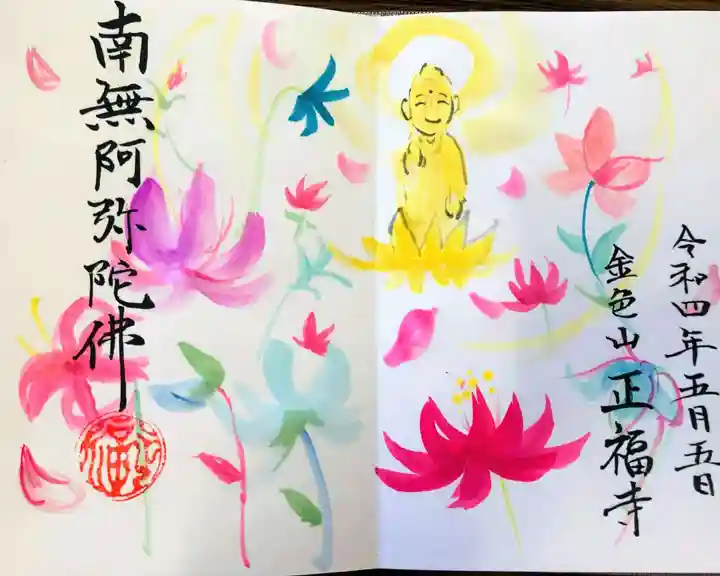 令和四年五月五日
金色山 正福寺
南無阿弥陀佛